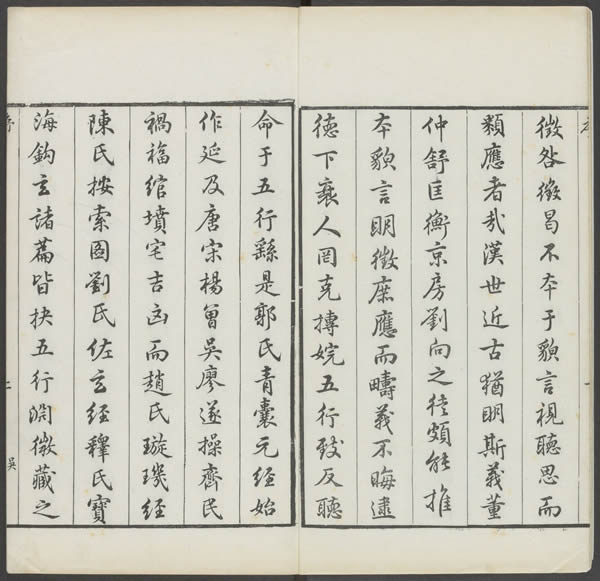 徵咎徵曷不夲于貌言視聽思而
類應者㢤漢世近古猶明斯義董
仲舒匡衡京房劉向之徒頗能推
夲貌言明徵庶應而疇義不晦逮
德下衰人罔克摶婉五行致反聽
命于五行繇是郭氏青囊元經始
作延及唐宋楊曾吳廖遂操齊民
禍福綰墳宅吉凶而趙氏璇璣經
陳氏按索圖劉氏佐玄經釋氏寶
海鉤玄諸篇皆抉五行淵微藏之
二
吳